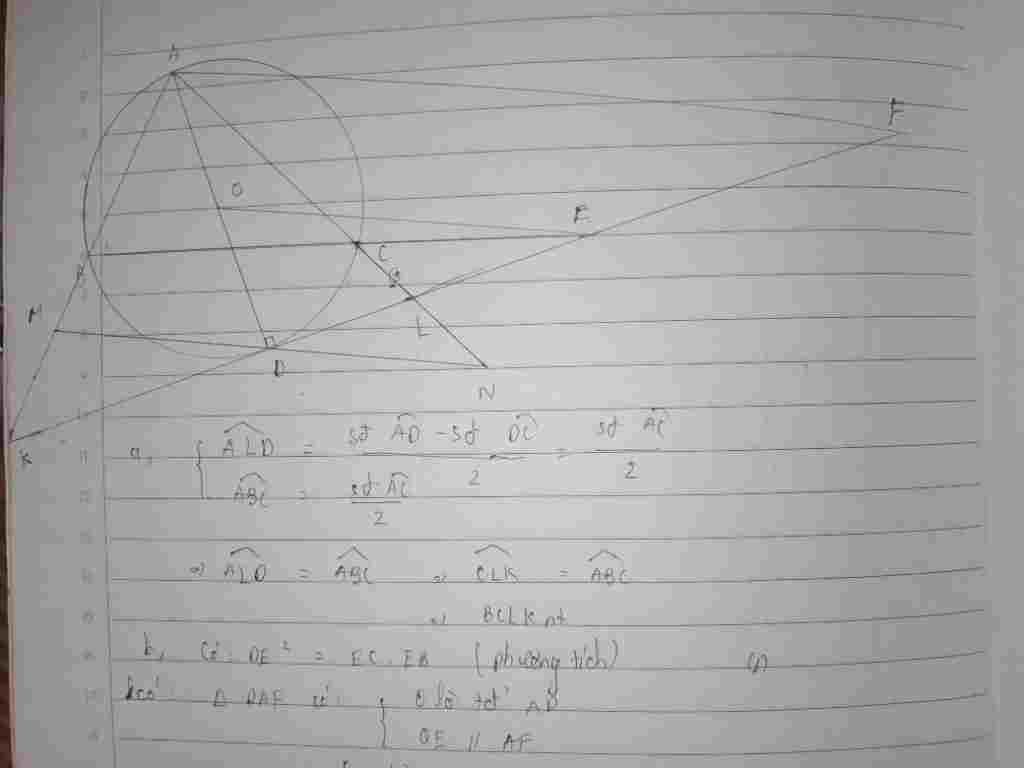 A
F
O
E
B
C
M
L
D
N
K
a, { ALD = sđ AD - sđ DC / 2 = sđ AC / 2
ABC = sđ AC / 2
=> ALD = ABC => CLK = ABC
=> BCLK nt
b, Có: DE² = EC . EB (phương tích) (1)
Δ DAF có: { O là tđ' AD
OE // AF